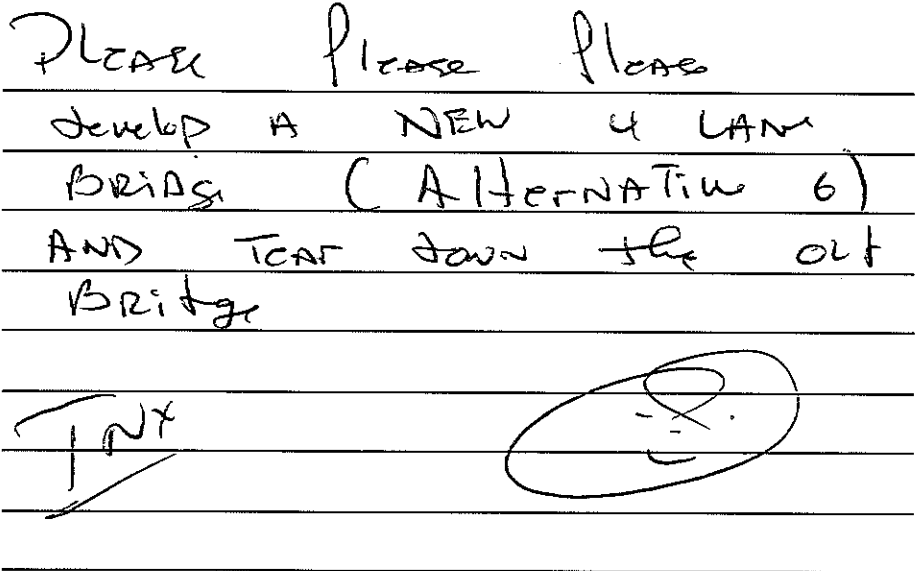 PLEASE Please Please
develop A NEW 4 LANE
BRIDGE (AlterNATive 6)
AND TEAr down the old
BRidge
TNX